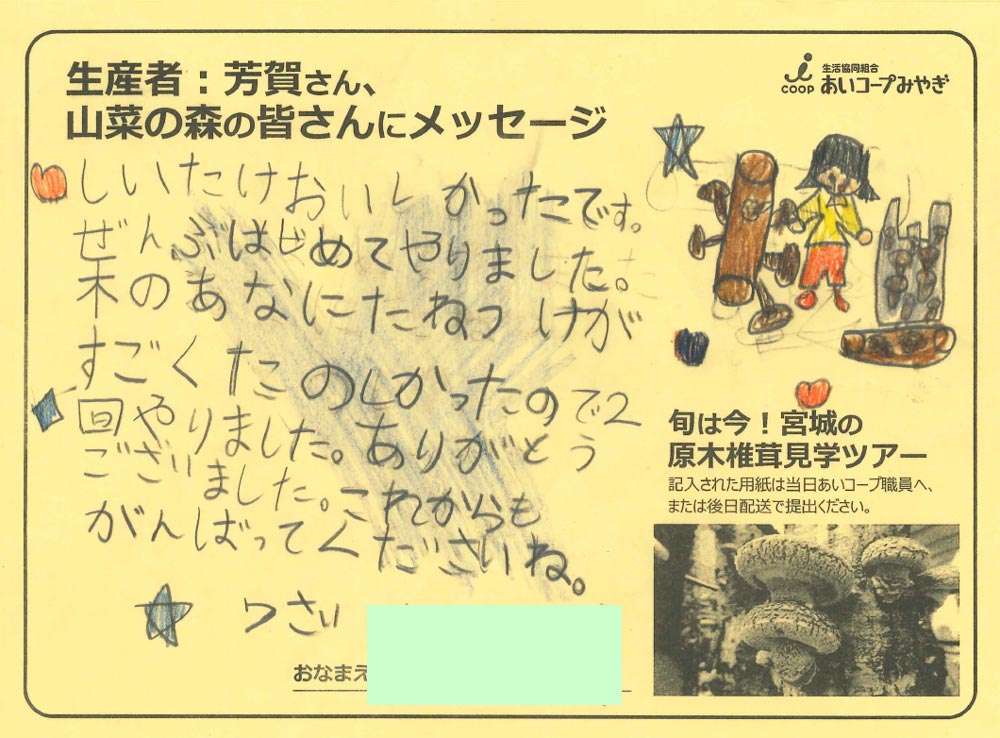 生産者：芳賀さん、
山菜の森の皆さんにメッセージ
生活協同組合
COOP あいコープみやぎ
しいたけおいしかったです。
ぜんぶはじめてやりました。
木のあなにたねつけが
すごくたのしかったので2
回やりました。ありがとう
ございました。これからも
がんばってくださいね。
7さい
おなまえ
旬は今！宮城の
原木椎茸見学ツアー
記入された用紙は当日あいコープ職員へ、
または後日配送で提出ください。